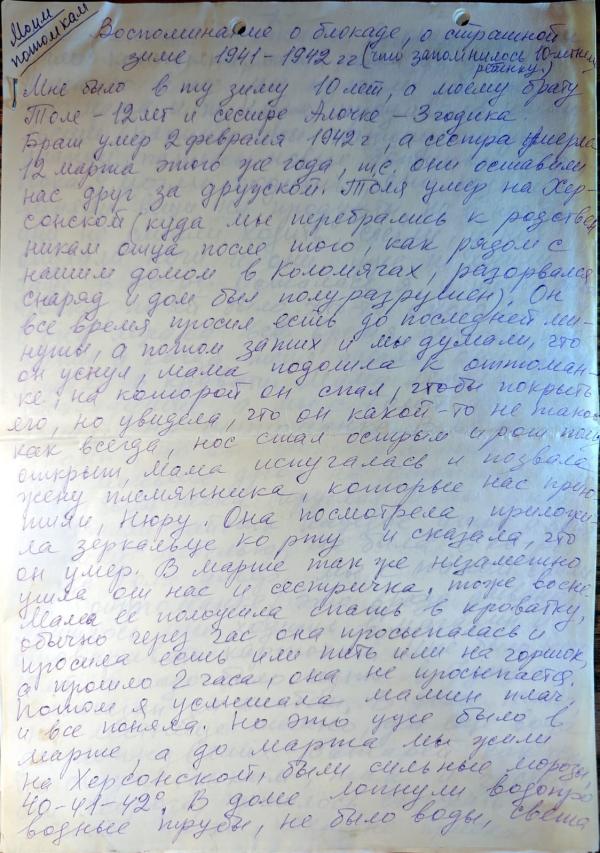 Моим
потомкам
Воспоминание о блокаде, о страшной
зиме 1941-1942 гг (что запомнилось 10-летнему
ребенку.)
Мне было в ту зиму 10 лет, а моему брату
Толе - 12 лет и сестре Алочке - 3 годика.
Брат умер 2 февраля 1942 г, а сестра умерла
12 марта этого же года, т.е. они оставили
нас друг за дружкой. Толя умер на Хер-
сонской (куда мы перебрались к родствен
никам отца после того, как рядом с
нашим домом в Коломягах, разорвался
снаряд и дом был полуразрушен). Он
все время просил есть до последней ми-
нуты, а потом затих и мы думали, что
он уснул, мама подошла к оттоман-
ке, на которой он спал, чтобы покрыть
его, но увидела, что он какой-то не такой
как всегда, нос стал острым и рот полу
открыт, Мама испугалась и позвала
жену племянника, которые нас прию-
тили, Нюру. Она посмотрела, приложи-
ла зеркальце ко рту и сказала, что
он умер. В марте так же незаметно
ушла от нас и сестричка, тоже во сне
Мама её положила спать в кроватку,
обычно через час она просыпалась и
просила есть или пить или на горшок,
а прошло 2 часа, она не просыпается.
Потом я услышала мамин плач,
и все поняла. Но это уже было в
марте, а до марта мы жили
на Херсонской, были сильные морозы,
40-41-42°. В доме лопнули водопро
водные трубы, не было воды, света